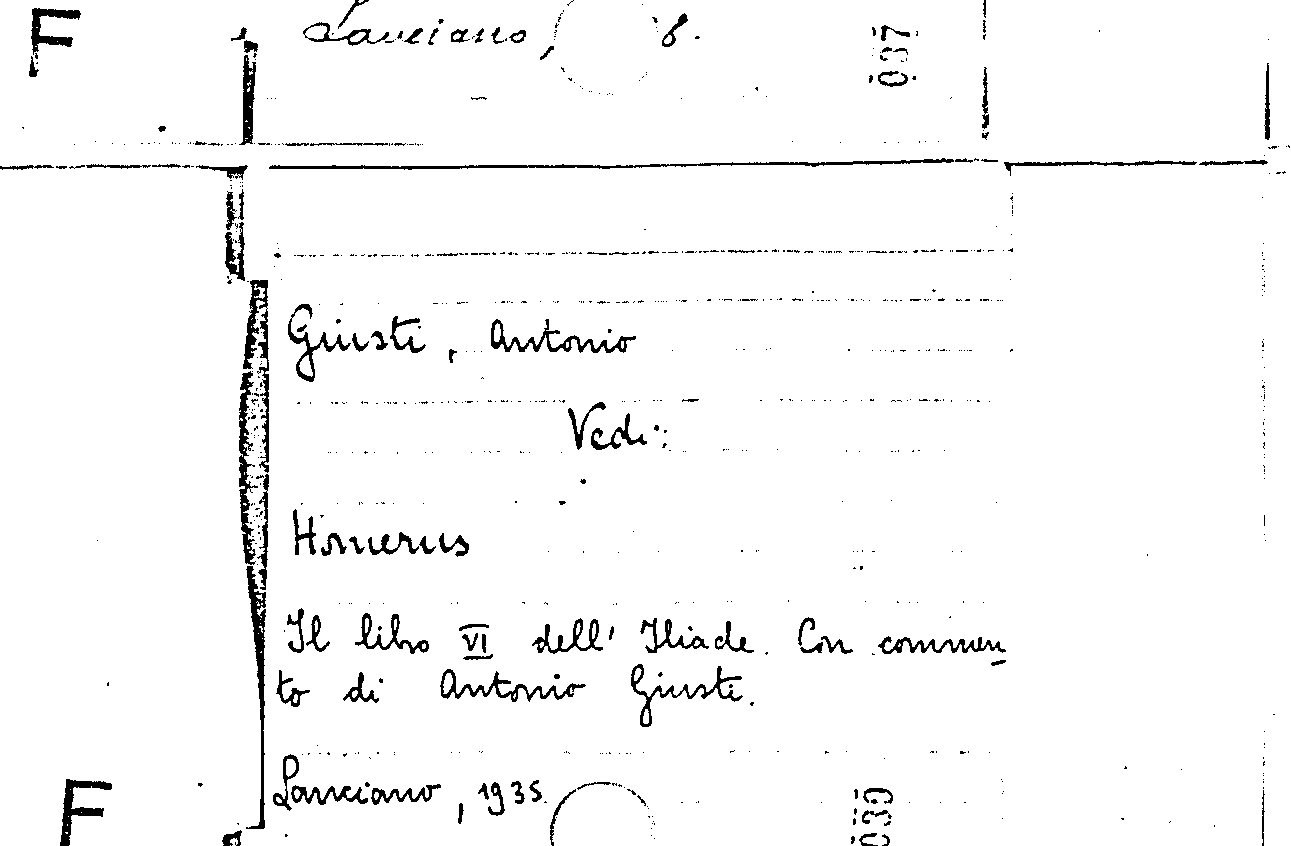 F
Lanciano, s.
037
Giusti, Antonio
Vedi:
Homerus
Il libro VI dell' Iliade. Con commen
to di Antonio Giusti.
Lanciano, 1935
F
039